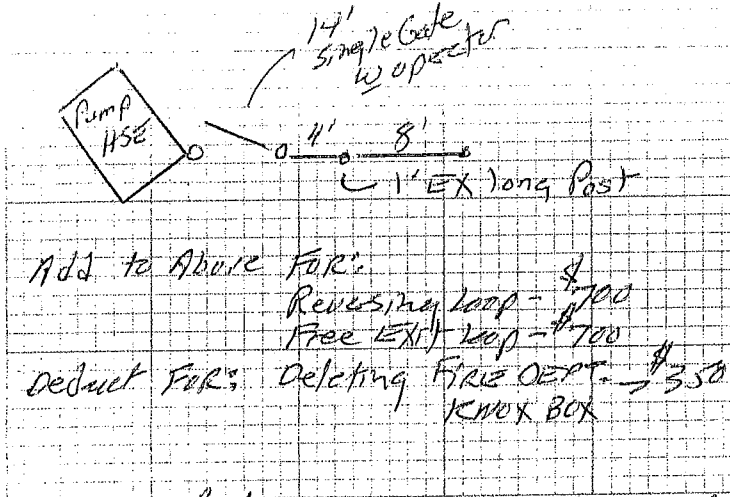 14'
Single Gate
w operator
Pump
HSE
4' 8'
1' EX long Post
Add to Above FOR:
Reversing Loop - $700
Free Exit Loop - $700
Deduct FOR: Deleting FIRE DEPT. → $350
KNOX BOX